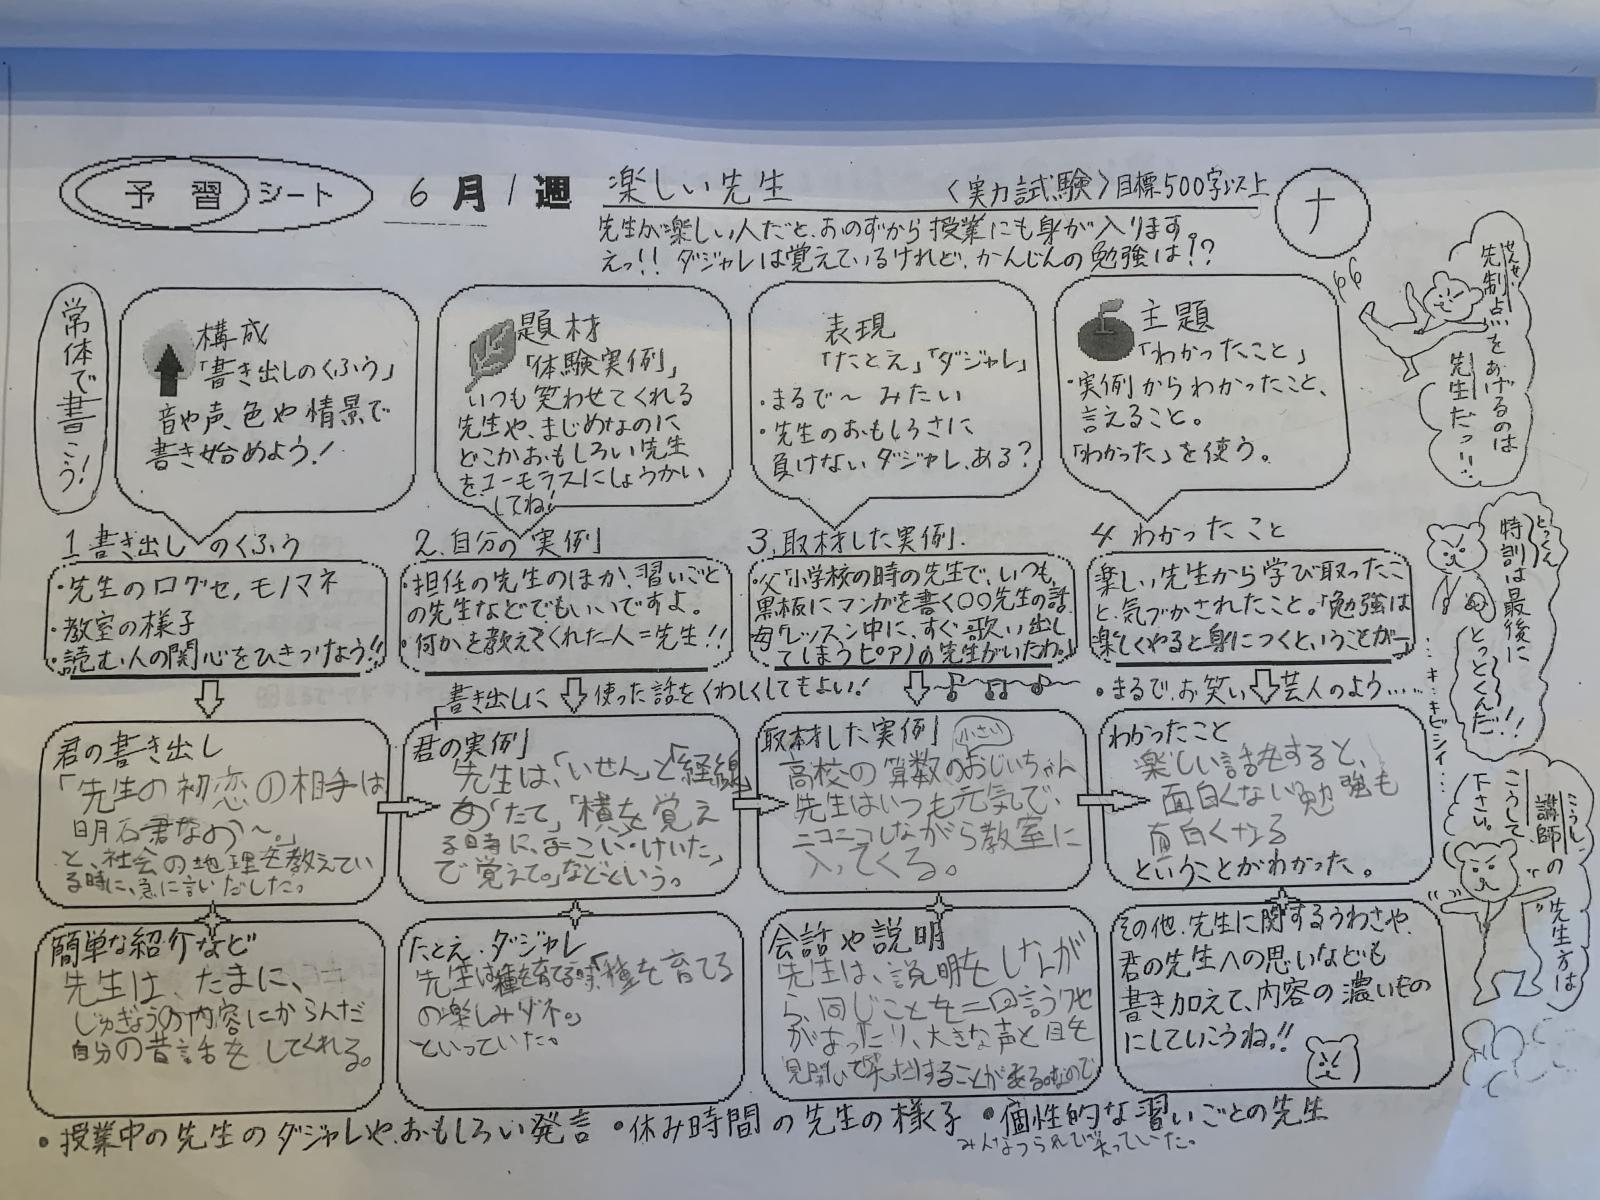 予習シート
6月1週
楽しい先生
〈実力試験〉目標500字以上
ナ
先生が楽しい人だと、おのずから授業にも身が入ります。
えっ!! ダジャレは覚えているけれど、かんじんの勉強は!?
常体で書こう!
構成
「書き出しのくふう」
音や声、色や情景で
書き始めよう!
題材
「体験実例」
いつも笑わせてくれる
先生や、まじめなのに
どこかおもしろい先生
を、ユーモラスにしょうかい
してね!
表現
「たとえ」「ダジャレ」
・まるで〜みたい
・先生のおもしろさに
負けないダジャレ、ある?
主題
「わかったこと」
・実例からわかったこと、
言えること。
「わかった」を使う。
せんせい
先制点をあげるのは
先生だっ!!
1 書き出しのくふう
・先生の口グセ,モノマネ
・教室の様子
・読む人の関心をひきつけよう!!
2.自分の実例
・担任の先生のほか、習いごと
の先生などでもいいですよ。
・何かを教えてくれた人=先生!!
3.取材した実例.
・父「小学校の時の先生で、いつも、
黒板にマンガを書く〇〇先生の話
母「レッスン中に、すぐ歌い出し
てしまうピアノの先生がいたわ。」
4 わかったこと
楽しい先生から学び取ったこ
と、気づかされたこと。「勉強は
楽しくやると身につくということが〜」
とっくん
特訓は最後に
とっとくんだ!!
…キ…キビシイ…
書き出しに使った話をくわしくしてもよい!
・まるで、お笑い芸人のよう……
君の書き出し
「先生の初恋の相手は
明石君なの〜。」
と、社会の地理を教えてい
る時に、急に言いだした。
君の実例
先生は、「いせん」と「経線」
「たて」「横」を覚え
る時に、「よこい・けいた」
で覚えて。」などという。
取材した実例
小さい
高校の算数のおじいちゃん
先生はいつも元気で、
ニコニコしながら教室に
入ってくる。
わかったこと
楽しい話をすると、
面白くない勉強も
面白くなる
ということがわかった。
こうし
講師の先生方は
こうして
下さい。
簡単な紹介など
先生は、たまに、
じゅぎょうの内容にからんだ
自分の昔話をしてくれる。
たとえ、ダジャレ
先生は種を育てる時「種を育てる
の楽しみダネ。」
といっていた。
会話や説明
先生は、説明をしなが
ら、同じことを二回言うクセ
があったり、大きな声と目を
見開いて笑ったりすることがある。なので
その他、先生に関するうわさや、
君の先生への思いなども
書き加えて、内容の濃いもの
にしていこうね!!
・授業中の先生のダジャレや、おもしろい発言 ・休み時間の先生の様子 ・個性的な習いごとの先生
みんなつられて笑っていた。